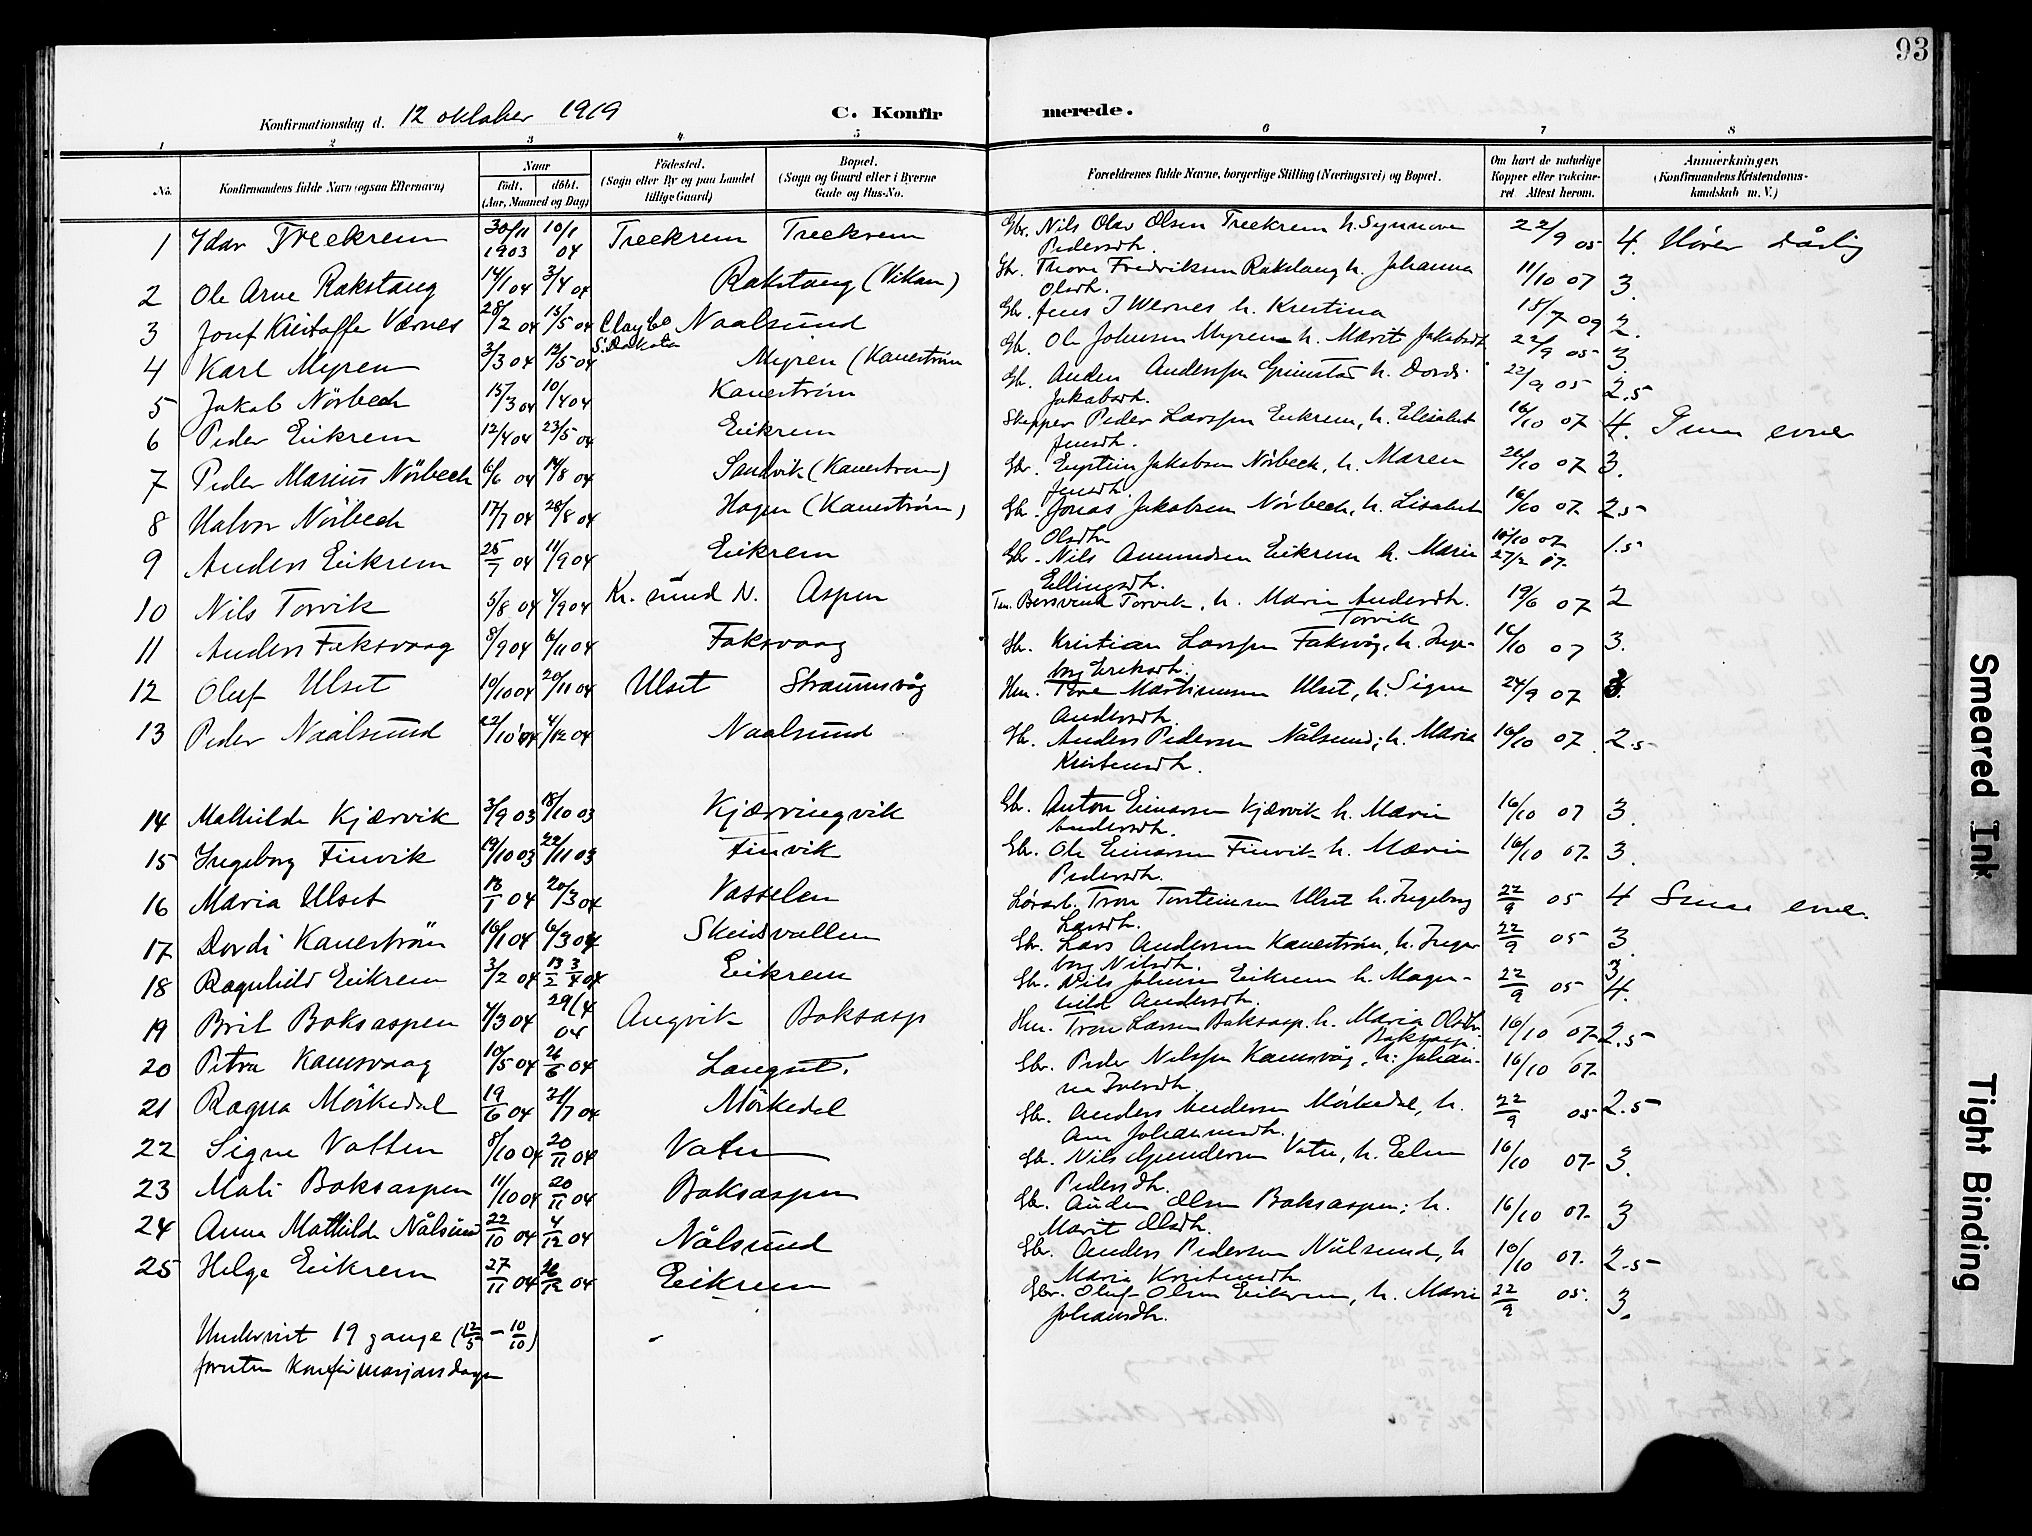 93
Konfirmationsdag d. 12 oktober 1919 C. Konfirmerede.
1 2 3 4 5 6 7 8
No. Konfirmandens fulde Navn (ogsaa Efternavn) Naar født. døbt. (Aar, Maaned og Dag) Fødested. (Sogn eller By og paa Landet tillige Gaard) Bopæl. (Sogn og Gaard eller i Byerne Gade og Hus-No. Forældrenes fulde Navne, borgerlige Stilling (Næringsvei) og Bopæl. Om havt de naturlige Kopper eller vakcineret Attest herom. Anmærkninger, (Konfirmandens Kristendomskundskab m. V.)
1 Idar Treekrem 30/11 1903 10/1 04 Treekrem Treekrem Gbr. Nils Olav Olsen Treekrem h. Synnøve Pedersdtr. 22/9 05 4. Hører dårlig
2 Ole Arne Rakstang 14/1 04 3/4 04 Rakstang (Vikan) Gbr. Thore Fredriksen Rakstang h. Johanna Olsdtr. 11/10 07 3.
3 Josef Kristoffer Værnes 28/2 04 15/5 04 Clay Co S. Dakota Naalsund Gbr. Jens J Wernes h. Kristina 15/7 09 2.
4 Karl Myren 3/3 04 12/5 04 Myren (Kanestrøm Gbr. Ole Johnsen Myren h. Marit Jakobsdtr 22/9 05 3.
5 Jakob Nörbech 15/3 04 10/4 04 Kanestrøm Gbr. Anders Anderssen Grimstad h. Dordi Jakobsdtr. 22/9 05 2.5
6 Peder Eikrem 12/4 04 23/5 04 Eikrem Skipper Peder Larssen Eikrem, h. Elisabet Jensdtr. 16/10 07 4. Smaa evner
7 Peder Marius Nörbech 6/6 04 14/8 04 Sandvik (Kanestrøm) Gbr. Eystein Jakobsen Nörbech, h. Maren Jensdtr. 26/10 07 3.
8 Halvor Nörbech 17/7 04 28/8 04 Hagen (Kanestrøm) Gbr. Jonas Jakobsen Nörbech, h. Lisabet Olsdtr 16/10 07 2.5
9 Anders Eikrem 25/7 04 11/9 04 Eikrem Gbr. Nils Amundsen Eikrem h. Marie Ellingsdtr. 16/10 07 27/2 07. 1.5
10 Nils Torvik 5/8 04 4/9 04 Kr. sund N. Aspen Bersvend Torvik, h. Marie Andersdtr. Torvik 19/6 07 2
11 Anders Foksvaag 8/9 04 6/11 04 Foksvaag Gbr. Kristian Larssen Foksvåg, h. Ingeborg Eriksdtr. 16/10 07 3.
12 Oluf Ulset 10/10 04 20/11 04 Ulset Straumsvåg Hm. Tore Martinusen Ulset, h. Signe Andersdtr. 24/9 07 3.
13 Peder Naalsund 22/10 04 4/12 04 Naalsund Gbr. Anders Pedersen Nålsund, h. Maria Kristensdtr. 16/10 07. 2.5
14 Mathilde Kjærvik 3/9 03 18/10 03 Kjærvingvik Gbr. Anton Einarsen Kjærvik h. Marie Andersdtr. 16/10 07 3.
15 Ingeborg Finvik 19/10 03 22/11 03 Finvik Gbr. Ole Einarsen Finvik h. Marie Pedersdtr. 16/10 07. 3.
16 Maria Ulset 13/1 04 20/3 04 Vasselen Tron Torsteinsen Ulset h. Ingeborg Larsdtr. 22/9 05 4 Smaa evner
17 Dordi Kanestrøm 16/1 04 6/3 04 Skeidsvallen Gbr. Lars Andersen Kanestrøm, h. Ingeborg Nilsdtr. 22/9 05 3.
18 Ragnhild Eikrem 3/2 04 13/2 3/4 04 Eikrem Gbr. Nils Johnsen Eikrem h. Magnhild Andersdtr. 22/9 05 3 4.
19 Brit Boksaspen 4/3 04 29/4 04 Angvik Boksasp Hm. Tron Larsen Boksasp. h. Maria Olsdtr. Boksasp. 16/10 07. 2.5
20 Petra Kamsvaag 10/5 04 26/6 04 Langset. Gbr. Peder Nilssen Kamsvåg, h. Johanna Iversdtr. 16/10 07.
21 Ragna Mörkedal 19/6 04 24/7 04 Mörkedal Gbr. Anders Andersen Mörkedal, h. Ane Johannesdtr. 22/9 05 2.5
22 Signe Vatten 8/10 04 20/11 04 Vatn Gbr. Nils Gundersen Vatn, h. Elen Pedersdtr. 16/10 07. 3.
23 Mali Boksaspen 11/10 04 20/11 04 Boksaspen Gbr. Anders Olsen Boksaspen; h. Marit Olsdtr. 16/10 07. 3
24 Anna Mathilde Nålsund 22/10 04 4/12 04 Nålsund Gbr. Anders Pedersen Nålsund, h Maria Kristensdtr. 10/10 07. 2.5
25 Helga Eikrem 27/11 04 26/12 04 Eikrem Gbr. Oluf Olsen Eikrem, h. Marie Johansdtr. 22/9 05. 3.
Undervist 19 gange (12/5 - 10/10)
foruten konfirmasjonsdagen
Smeared Ink
Tight Binding